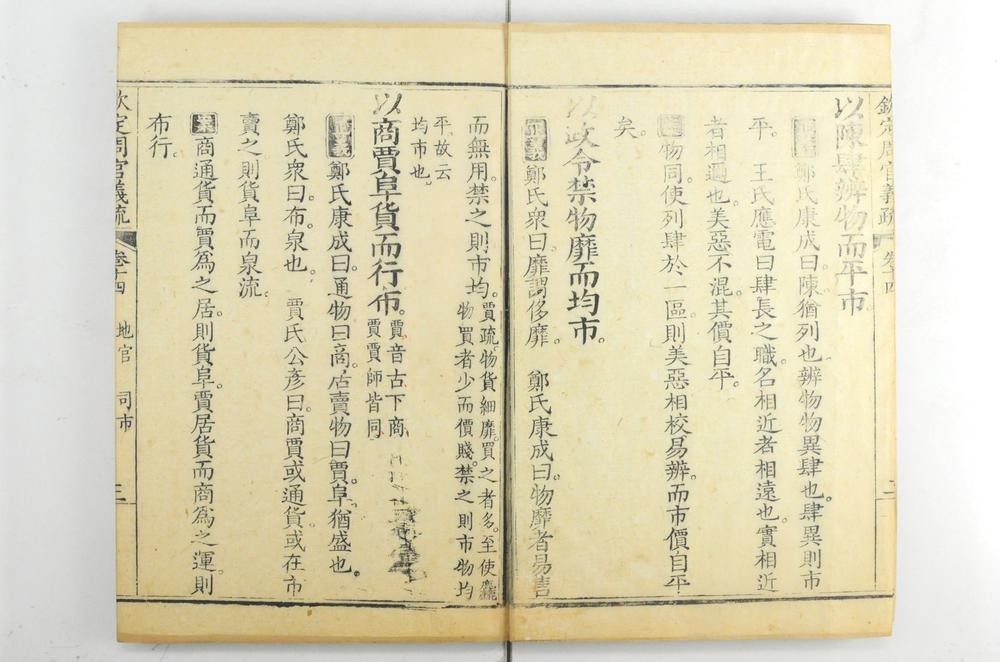 欽定周官義疏 卷十四 二
以陳肆辨物而平市
鄭氏康成曰陳猶列也辨物物異肆也肆異則市
平。 王氏應電曰肆長之職名相近者相遠也實相近
者相邇也美惡不混其價自平。
物同使列肆於一區則美惡相校易辨而市價自平
矣。
以政令禁物靡而均市。
正義鄭氏衆曰靡謂侈靡。 鄭氏康成曰物靡者易售
而無用。禁之則市均。賈疏。物貨細靡。買之者多。至使麤
物買者少而價賤。禁之則市物均
平。故云
均市也。
以商賈阜貨而行布。賈音古下商
賈賈師皆同
正義鄭氏康成曰通物曰商。居賣物曰賈。阜猶盛也。
鄭氏衆曰布。泉也。 賈氏公彥曰商賈或通貨。或在市
賣之則貨阜而泉流。
案商通貨而賈爲之居。則貨阜。賈居貨而商爲之運。則
布行。
欽定周官義疏 卷十四 地官 司市 三